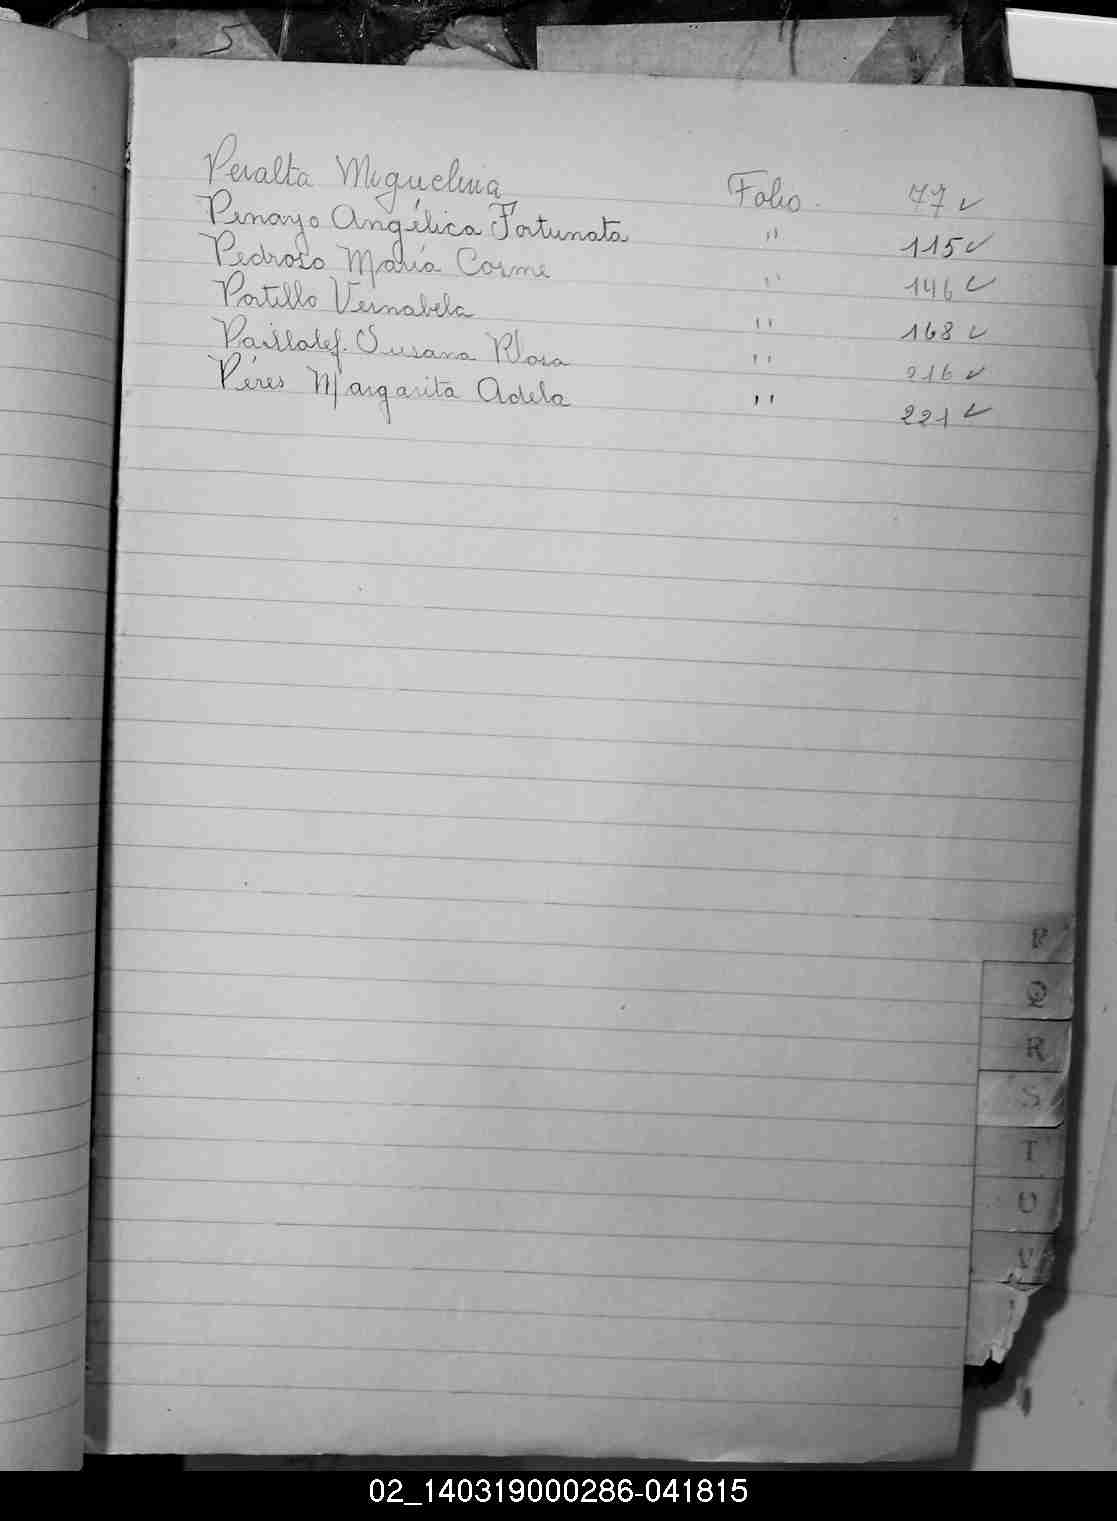 5
Peralta Miguelina Folio 77 ✓
Penayo Angélica Fortunata " 115 ✓
Pedroso María Cosme " 146 ✓
Portillo Vernabela " 168 ✓
Susana Rosa " 216 ✓
Péres Margarita Adela " 221 ✓
P
Q
R
S
T
U
V
02_140319000286-041815